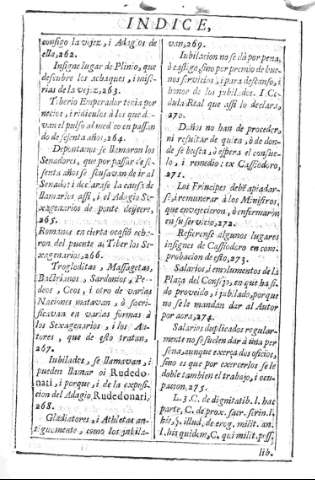 INDICE,
consigo la vejez, i Adagios de
ella, 262.
Insigne lugar de Plinio, que
descubre los achaques, i mise-
rias de la vejez, 263.
Tiberio Emperador tenia por
necios, i ridiculos à los que da-
van el pulso al medico en passan
do de sesenta años, 264.
Depontanos se llamavan los
Senadores, que por passar de se-
senta años se escusavan de ir al
Senado: i declarase la causa de
llamarlos assi, i el Adagio Sex-
xagenarios de ponte deijcere,
265.
Romanos en cierta ocasiõ echa-
ron del puente al Tiber los Se-
xagenarios, 266.
Trogloditas, Massagetas,
Bactrianos, Sardonios, Per-
deos, Ceos, i otro de varias
Naciones matavan, ò sacri-
ficavan en varias formas à
los Sexagenarios, i los Au-
tores, que de esto tratan,
267.
Iubilados, se llamavan, i
pueden llamar oi Rudedo-
nati, i porque, i de la exposi-
cion del Adagio, Rudedonari,
268.
Gladiatores, i Athletas an-
tiguamente, como los jubila-
van, 269.
Iubilacion no se dà por pena,
ò castigo, sino por premio de bue-
nos servicios, i para descanso, i
honor de los jubilados. I Ce-
dula Real que assi lo declara,
270.
Daños no han de proceder,
ni resultar de quien, ò de don-
de se busca, ò espera el consue-
lo, i remedio: ex Cassiodoro,
271.
Los Principes debē apiadar-
se, i remunerar à los Ministros,
que envejecieron, ò enfermaron
en su servicio, 272.
Refierense algunos lugares
insignes de Cassiodoro en com-
probacion de esto, 273.
Salarios, i emolumentos de la
Plaza del Consejo, en que ha si-
do proveido, i jubilado, porque
no se le mandan dar al Autor
por aora, 274.
Salarios duplicados regular-
mente no se suelen dar à una per
sona, aunque exerça dos oficios,
sino es que por exercerlos se le
doble tambien el trabajo, i ocu-
pacion, 275.
L. 3. C. de dignitatib. l. hac
parte, C. de prox. sacr. scrin. l.
his, ff. illud, de erog. milit. an.
l. his quidem, C. qui milit. poss.
lib.